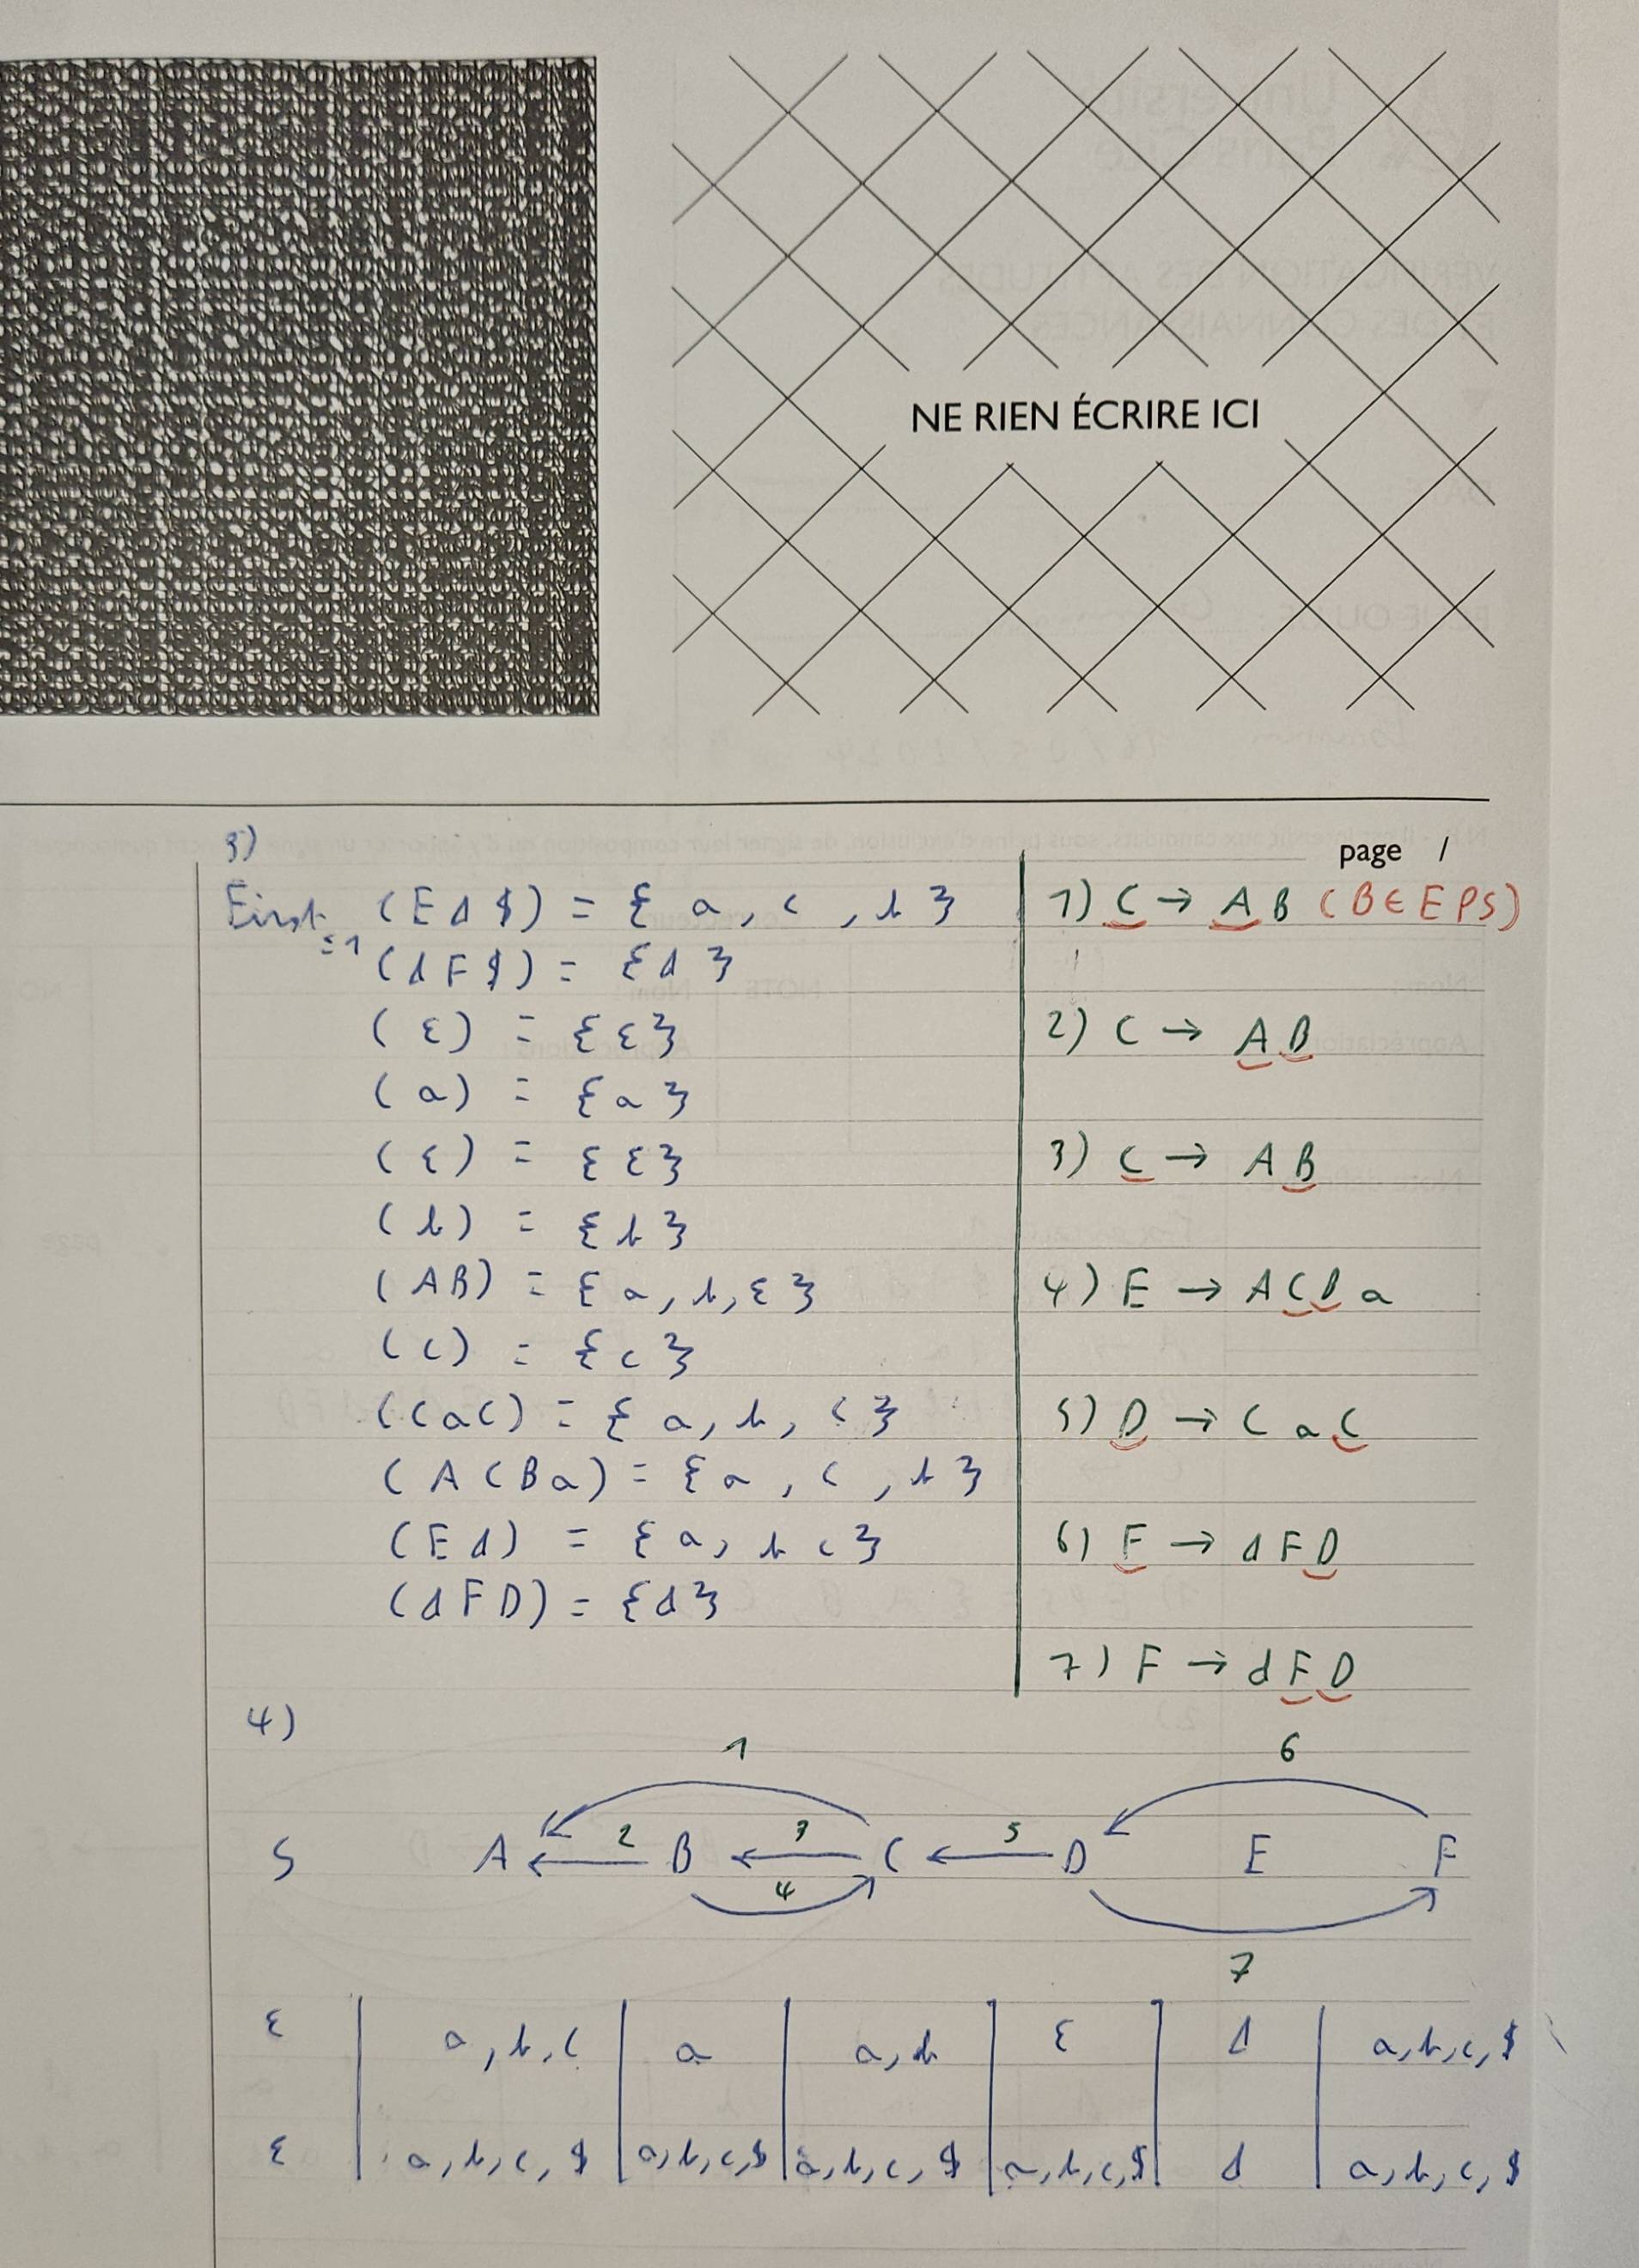 NE RIEN ÉCRIRE ICI
page /
3)
First≤1 (Ed$) = {a, c, b}
(dF$) = {d}
(ε) = {ε}
(a) = {a}
(ε) = {ε}
(b) = {b}
(AB) = {a, b, ε}
(c) = {c}
(CaC) = {a, b, c}
(ACBa) = {a, c, b}
(Ed) = {a, b c}
(dFD) = {d}
1) C → AB (B ∈ EPS)
2) C → AB
3) C → AB
4) E → ACBa
5) D → CaC
6) F → dFD
7) F → dFD
4)
1 6
2 3 5
S A B C D E F
4
7
ε | a, b, c | a | a, b | ε | d | a, b, c, $
ε | a, b, c, $ | a, b, c, $ | a, b, c, $ | a, b, c, $ | d | a, b, c, $